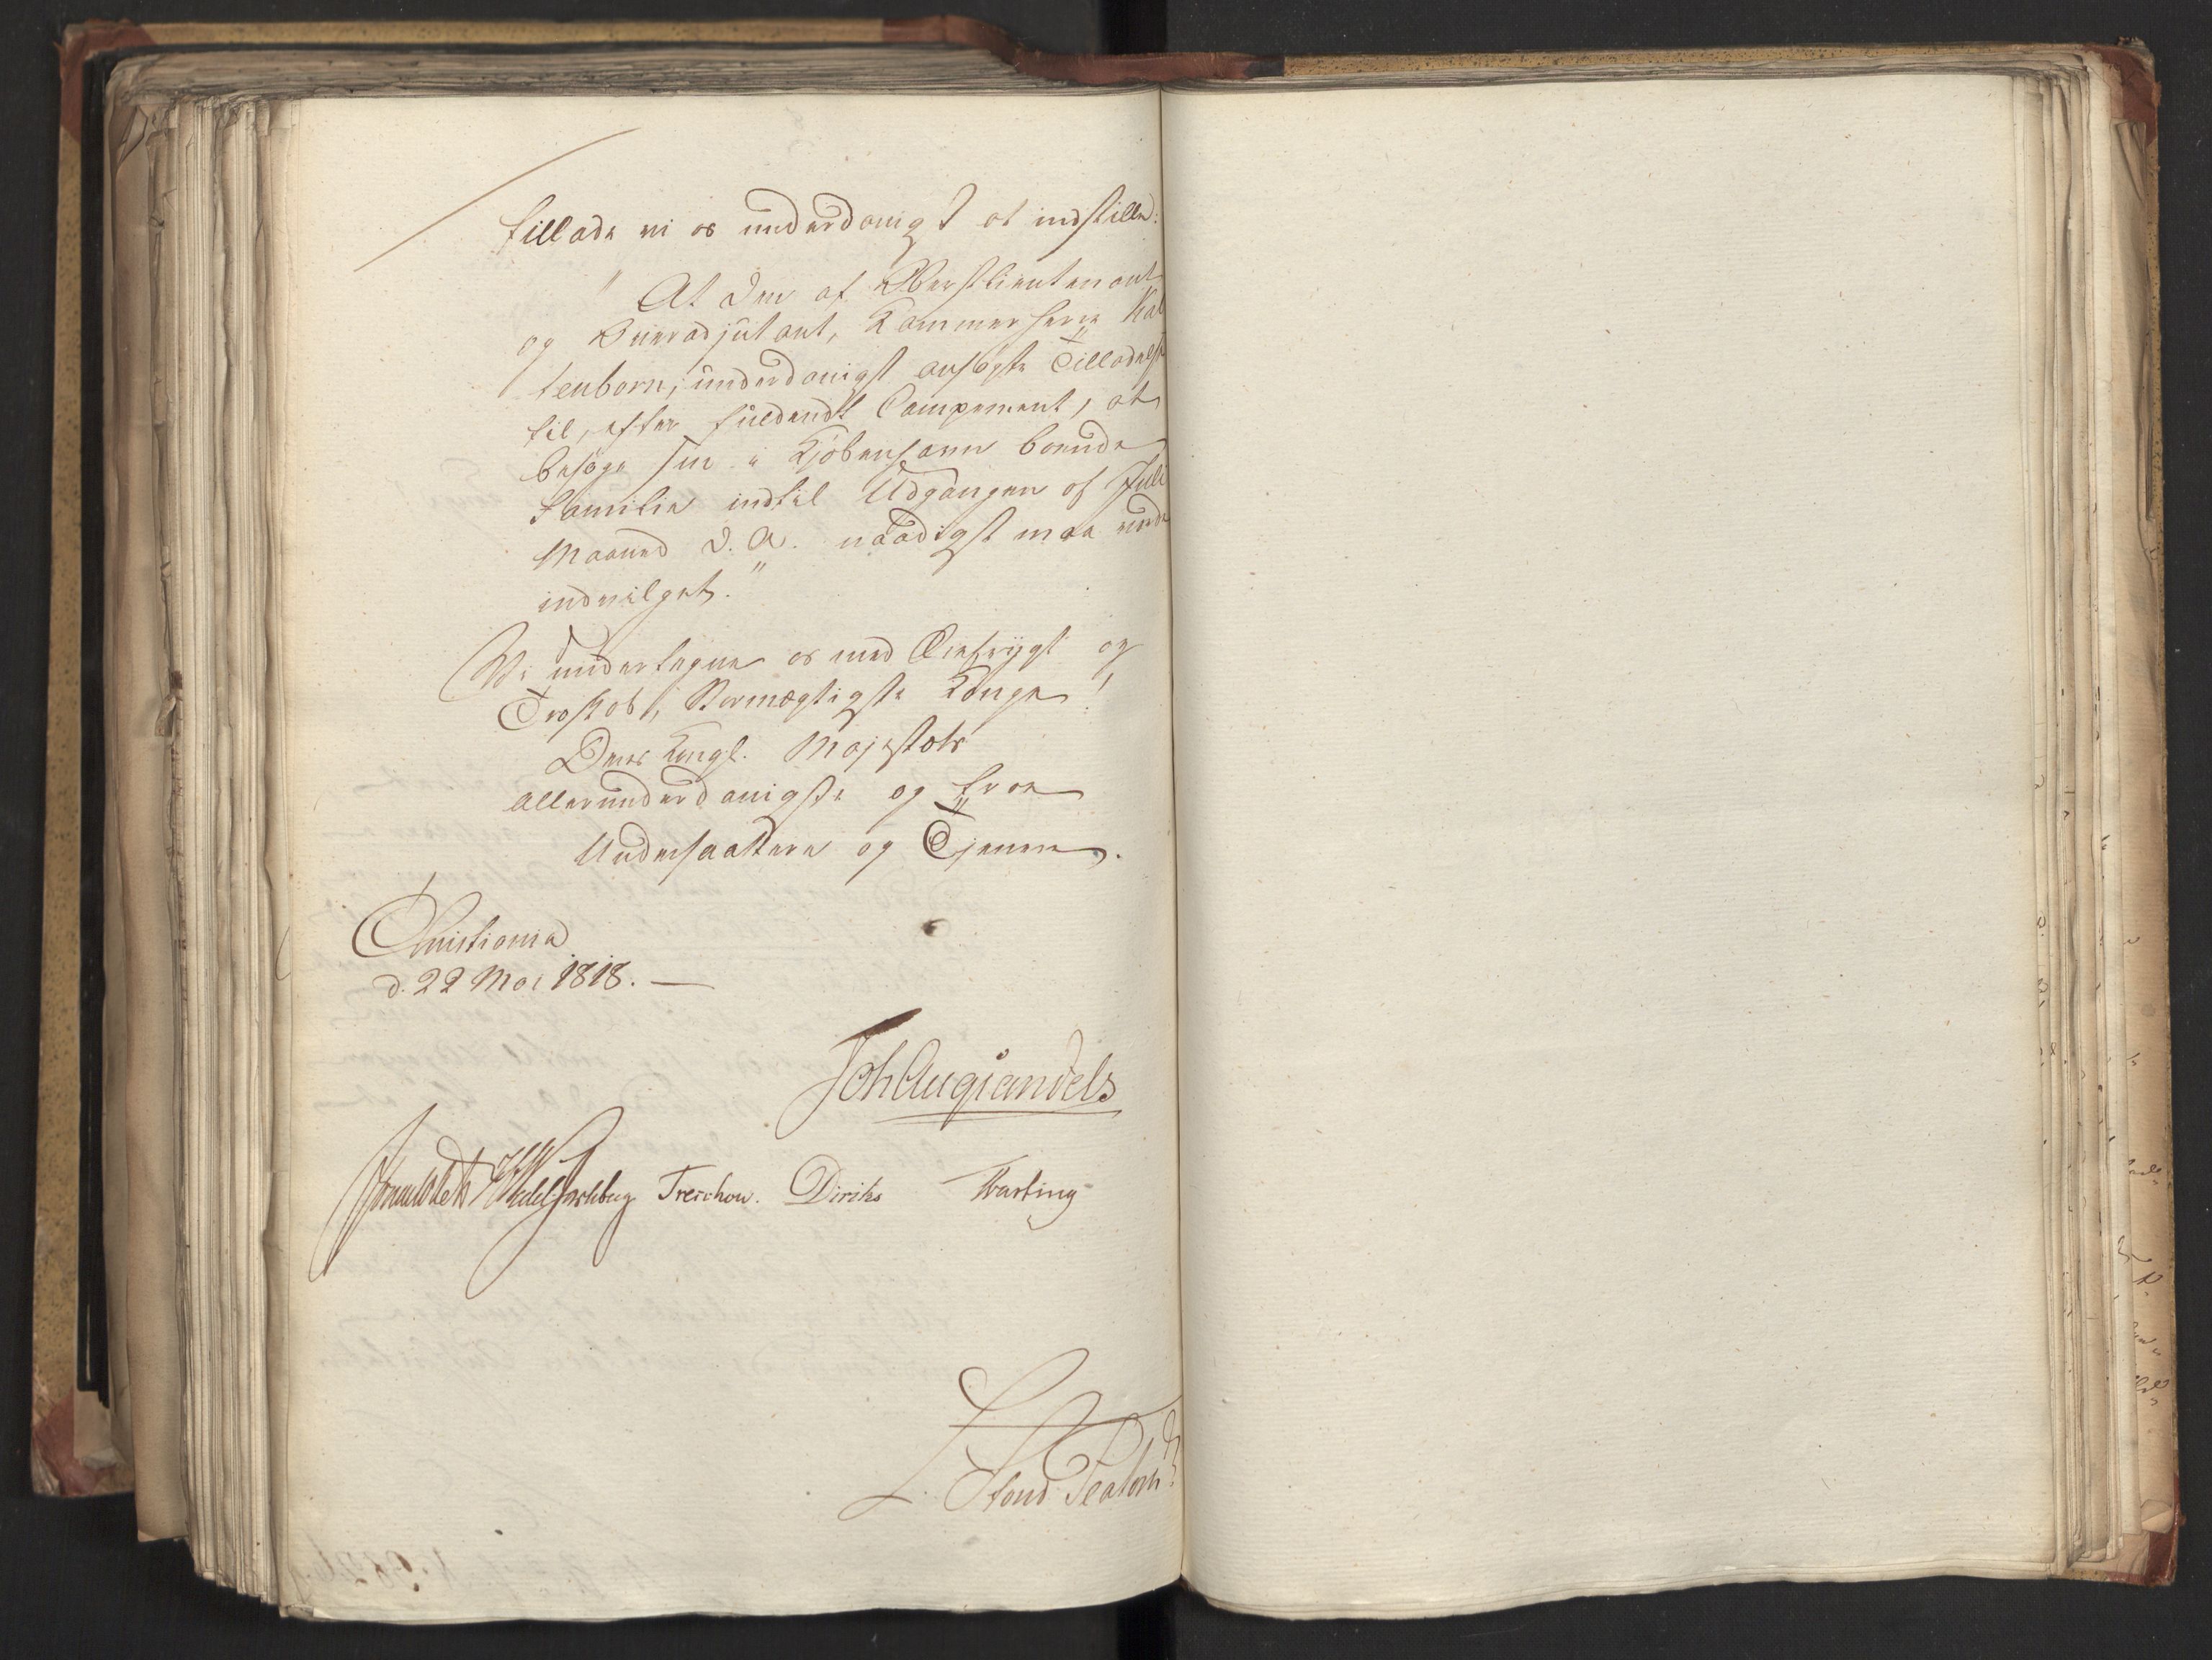 tillade vi os underdanigst at indstille:
"At den af Oberstlieutenant
og Overadjutant, Kammerherre Kal
tenborn, underdanigst ansøgte Tilladelse
til, efter fuldendt Campement, at
besøge sin i Kjøbenhavn boende
Familie indtil Udgangen af Juli
Maaned d. A. naadigst maa vorde
indvilget."
Vi undertegne os med Ærefrygt og
Troskab, Stormægtigste Konge!
Deres Kongl. Majestæts
allerunderdanigste og troe
Undersaatter og Tjenere.
Christiania
d. 22 Mai 1818. —
Joh Aug Sandels
Sommerhielm HWedelJarlsberg Treschow. Diriks Fasting
L. Stoud Platou